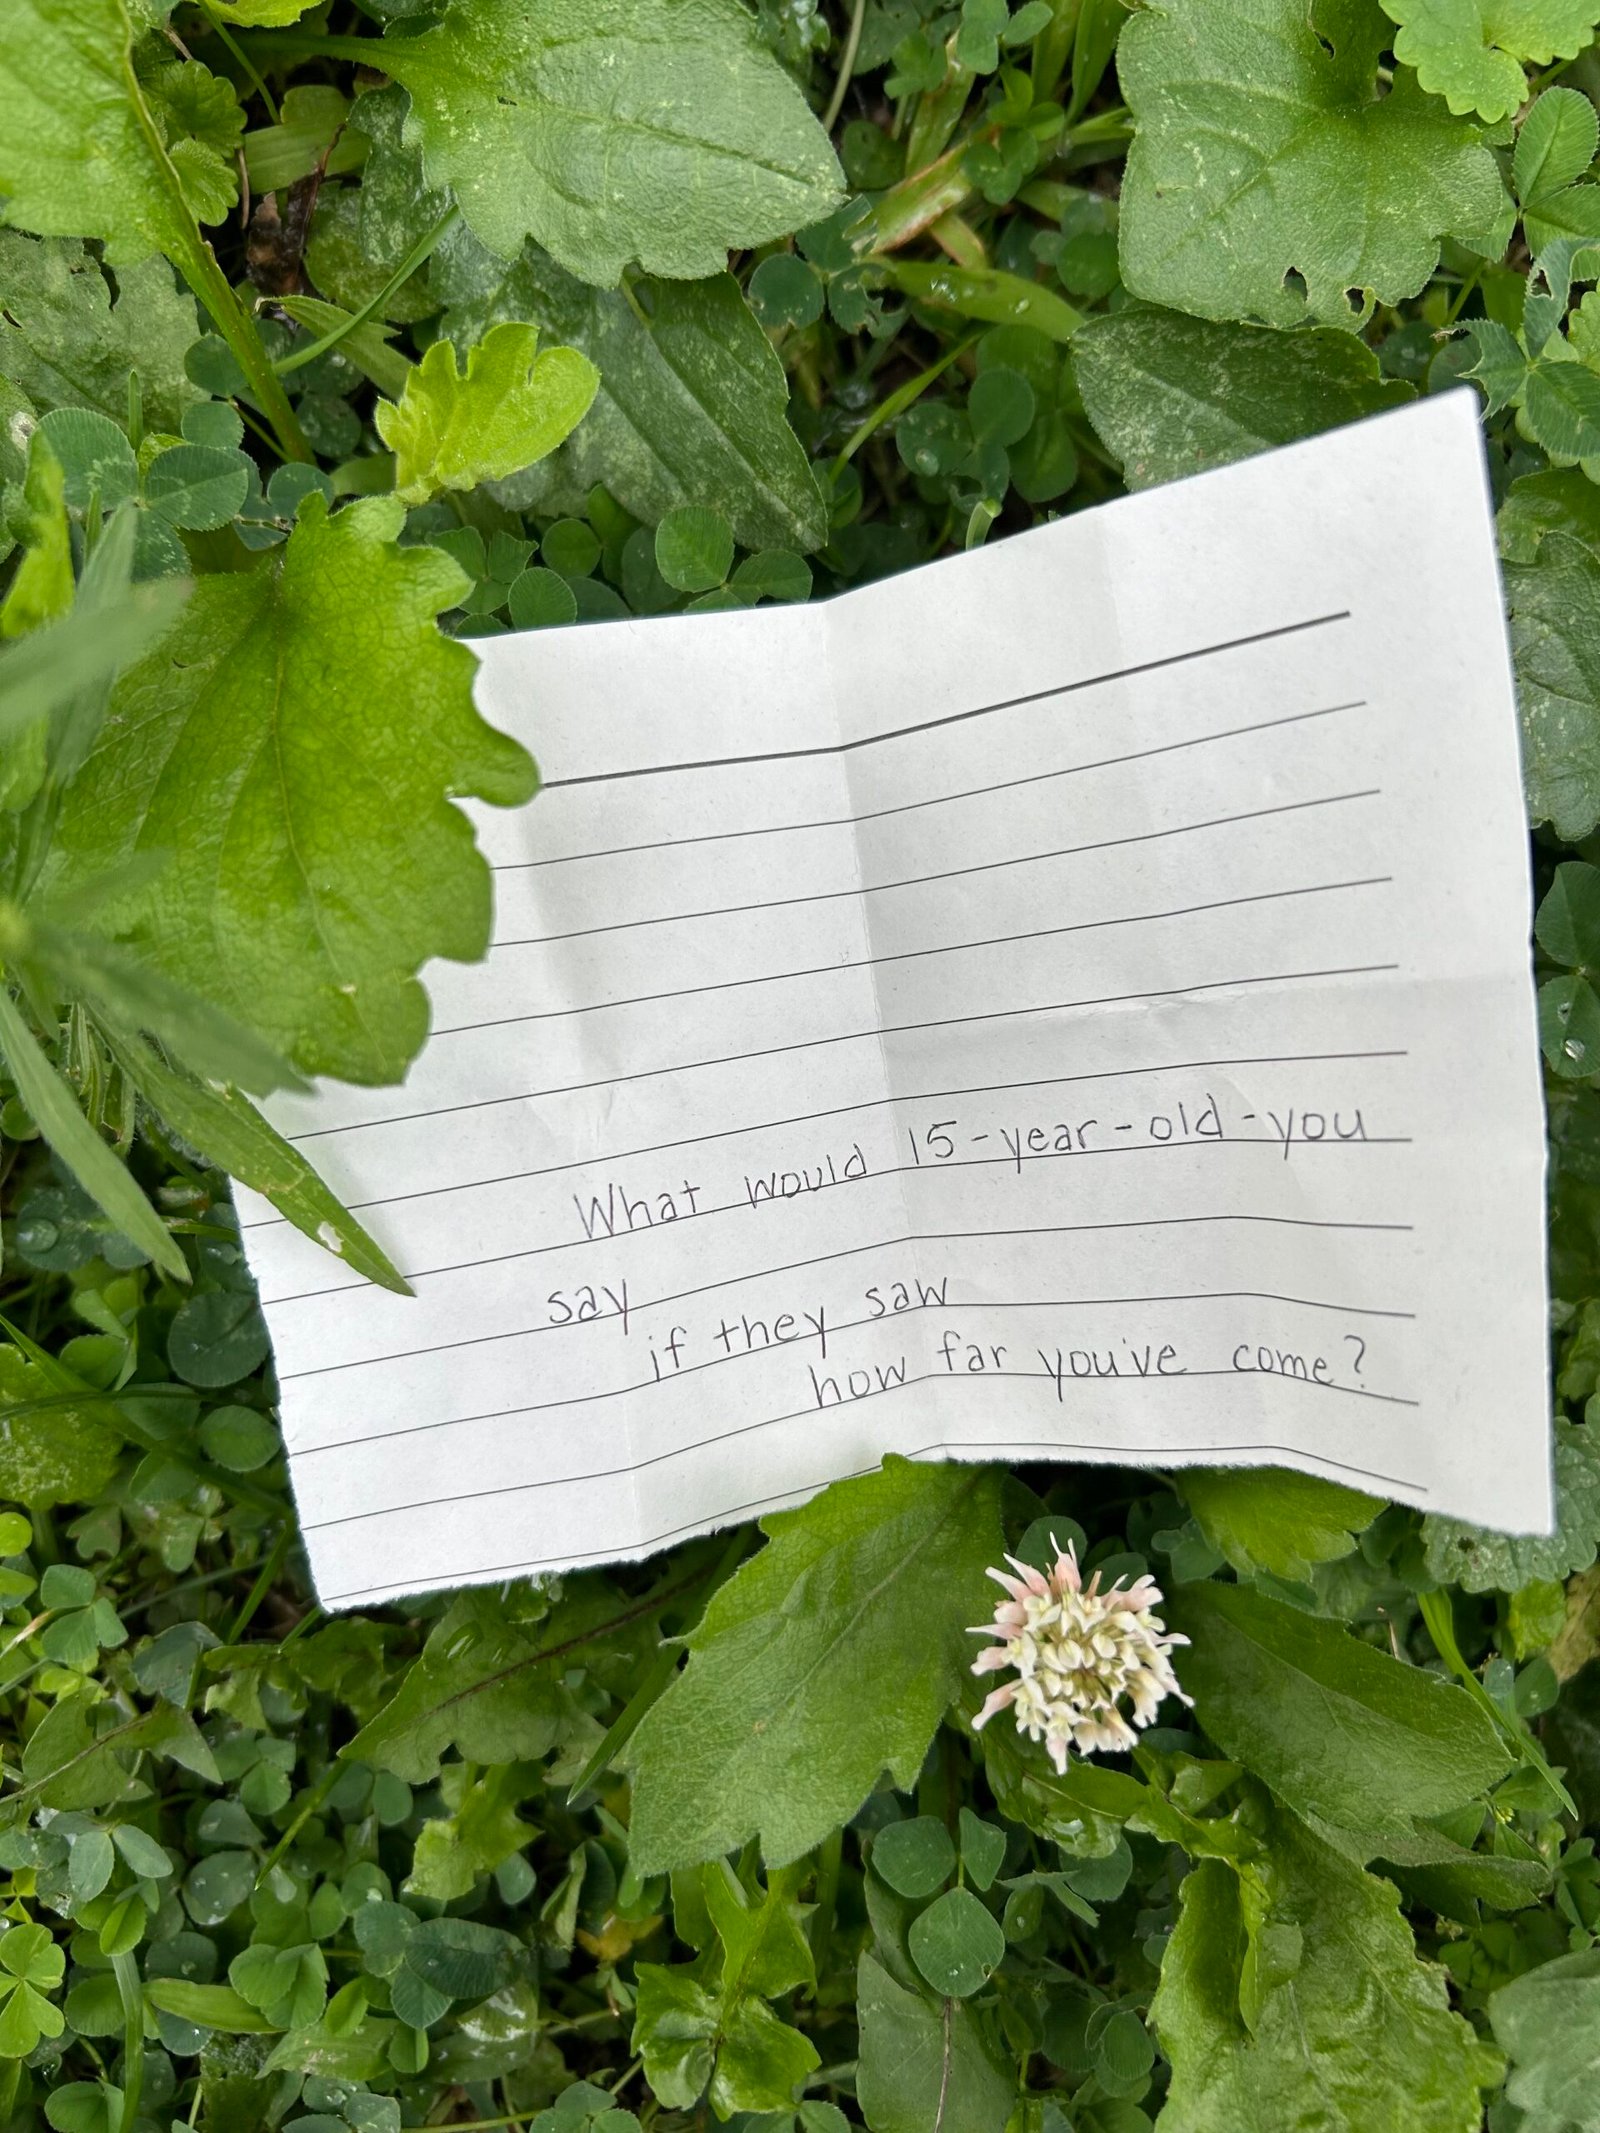 What would 15-year-old-you
say
if they saw
how far you've come?